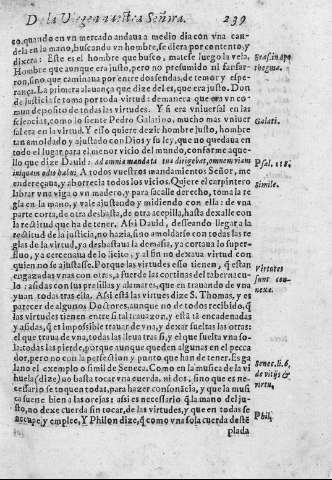 De la Virgen nuestra Señora. 239
co, quando en vn mercado andaua a medio dia con vna can-
dela en la mano, buscando vn hombre, se diera por contento, y
dixera: Este es el hombre que busco, matese luego la vela.
Hombre que aunque era justo, pero no presumido ni fanfar-
ron, sino que caminaua por entre dos sendas, de temor y espe-
rança. La primera alauança que dize del es, que era justo. Don
de justicia se toma por toda virtud: demanera que era vn co-
mun deposito de todas las virtudes. Y si era vniuersal en las
sciencias, como lo siente Pedro Galatino, mucho mas vniuer
sal era en la virtud. Y esto quiere dezir hombre justo, hombre
tan amoldado, y ajustado con Dios y su ley, que no quedaua en
todo el lugar, para el menor vicio del mundo, conforme aque-
llo que dize Dauid: ad omnia mandata tua dirigebar, omnem viam
iniquam odio habui. A todos vuestros mandamientos Señor, me
endereçaua, y aborrecia todos los vicios. Quiere el carpintero
labrar vna viga o vn madero, y para sacalle derecho, toma la re
gla en la mano, y vale ajustando y midiendo con ella: de vna
parte corta, de otra desbasta, de otra acepilla, hasta dexalle con
la rectitud que ha de tener. Assi Dauid, desseando llegar a la
rectitud de la justicia, no hazia, sino amoldarse con todas las re
glas de la virtud, ya desbastaua la demasia, ya cortaua lo super-
fluo, ya cercenaua de lo licito, y al fin no dexaua virtud con
quien no se ajustasse. Porque las virtudes esso tienen, q̃ estan
engazadas vnas con otras, a fuer de las cortinas del tabernacu-
lo: asidas con sus presillas y alamares, que en trauando de vna
yuan todas tras ella. Assi está las virtudes dize S. Thomas, y es
parecer de algunos Doctores, aunque no de todos recibido, q̃
las virtudes tienen entre si tal trauazon, y está tã encadenadas
y asidas, q̃ es impossible trauar de vna, y dexar sueltas las otras:
el que traua de vna, todas las lleua tras si, y el que suelta vna so-
la: todas las pierde, porque aunque queden algunas en el pecca
dor, pero no con la perfection y punto que han de tener. Es ga
lano el exemplo o simil de Seneca. Como en la musica de la vi
huela (dize) no basta tocar vna cuerda, ni dos, sino que es ne-
cessario se toquen todas, para hazer consonãcia, y que la musi
ca suene bien a las orejas: assi es necessario q̃ la mano del ju-
sto, no dexe cuerda sin tocar, de las virtudes, y que en todas se
occupe, y emplee. Y Philon dize, q̃ como vna sola cuerda destẽ
plada
Eras. in apo
thegma.
Galati.
Psal. 118.
Simile.
Virtutes
sunt con-
nexæ.
Senec. li. 6.
de vitijs &
virtu.
Phil.